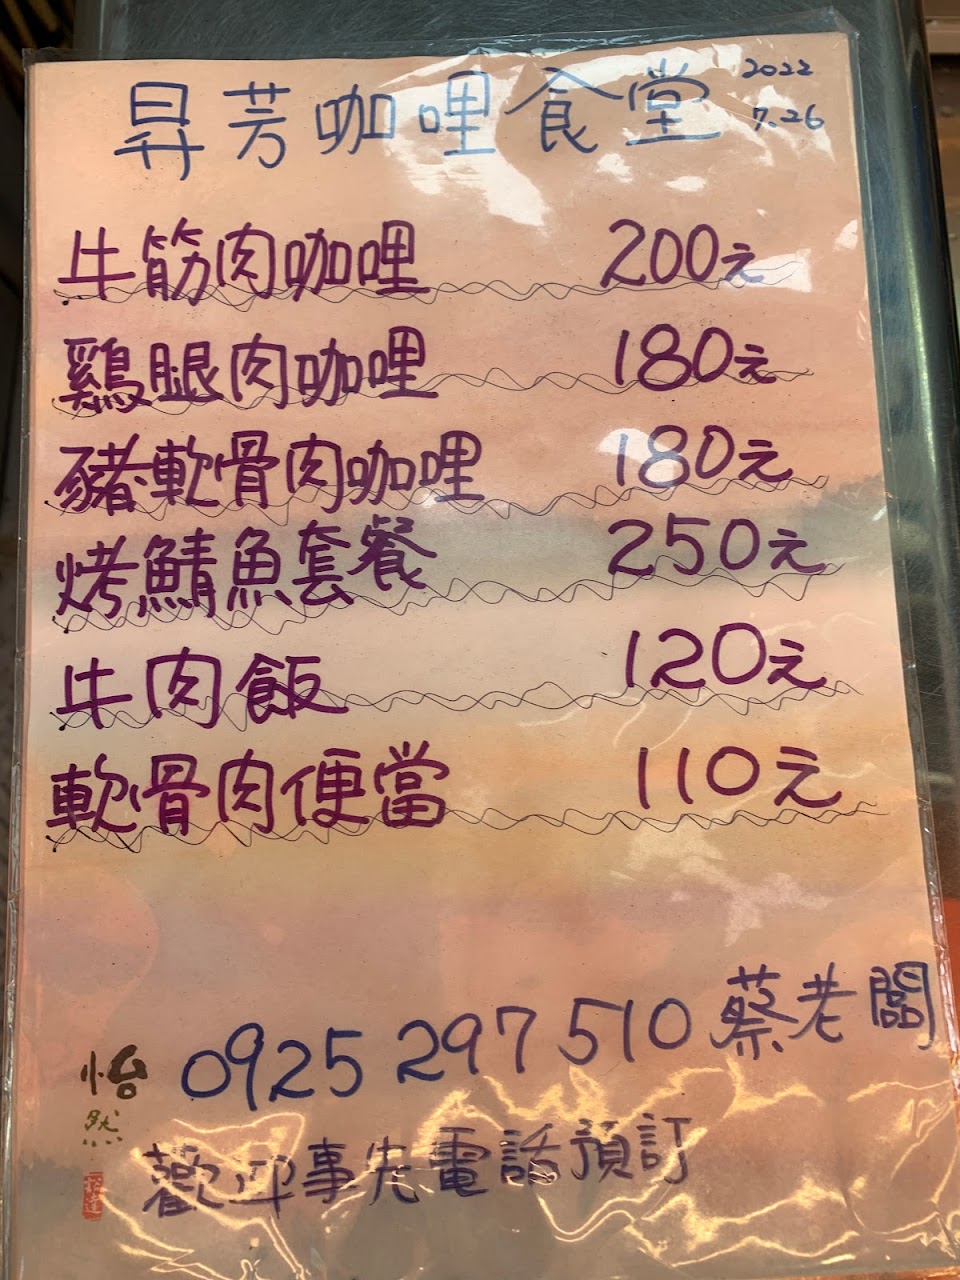 昇芳咖哩食堂 2022
7.26
牛筋肉咖哩 200元
鷄腿肉咖哩 180元
豬軟骨肉咖哩 180元
烤鯖魚套餐 250元
牛肉飯 120元
軟骨肉便當 110元
0925 297 510 蔡老闆
怡然
歡迎事先電話預訂